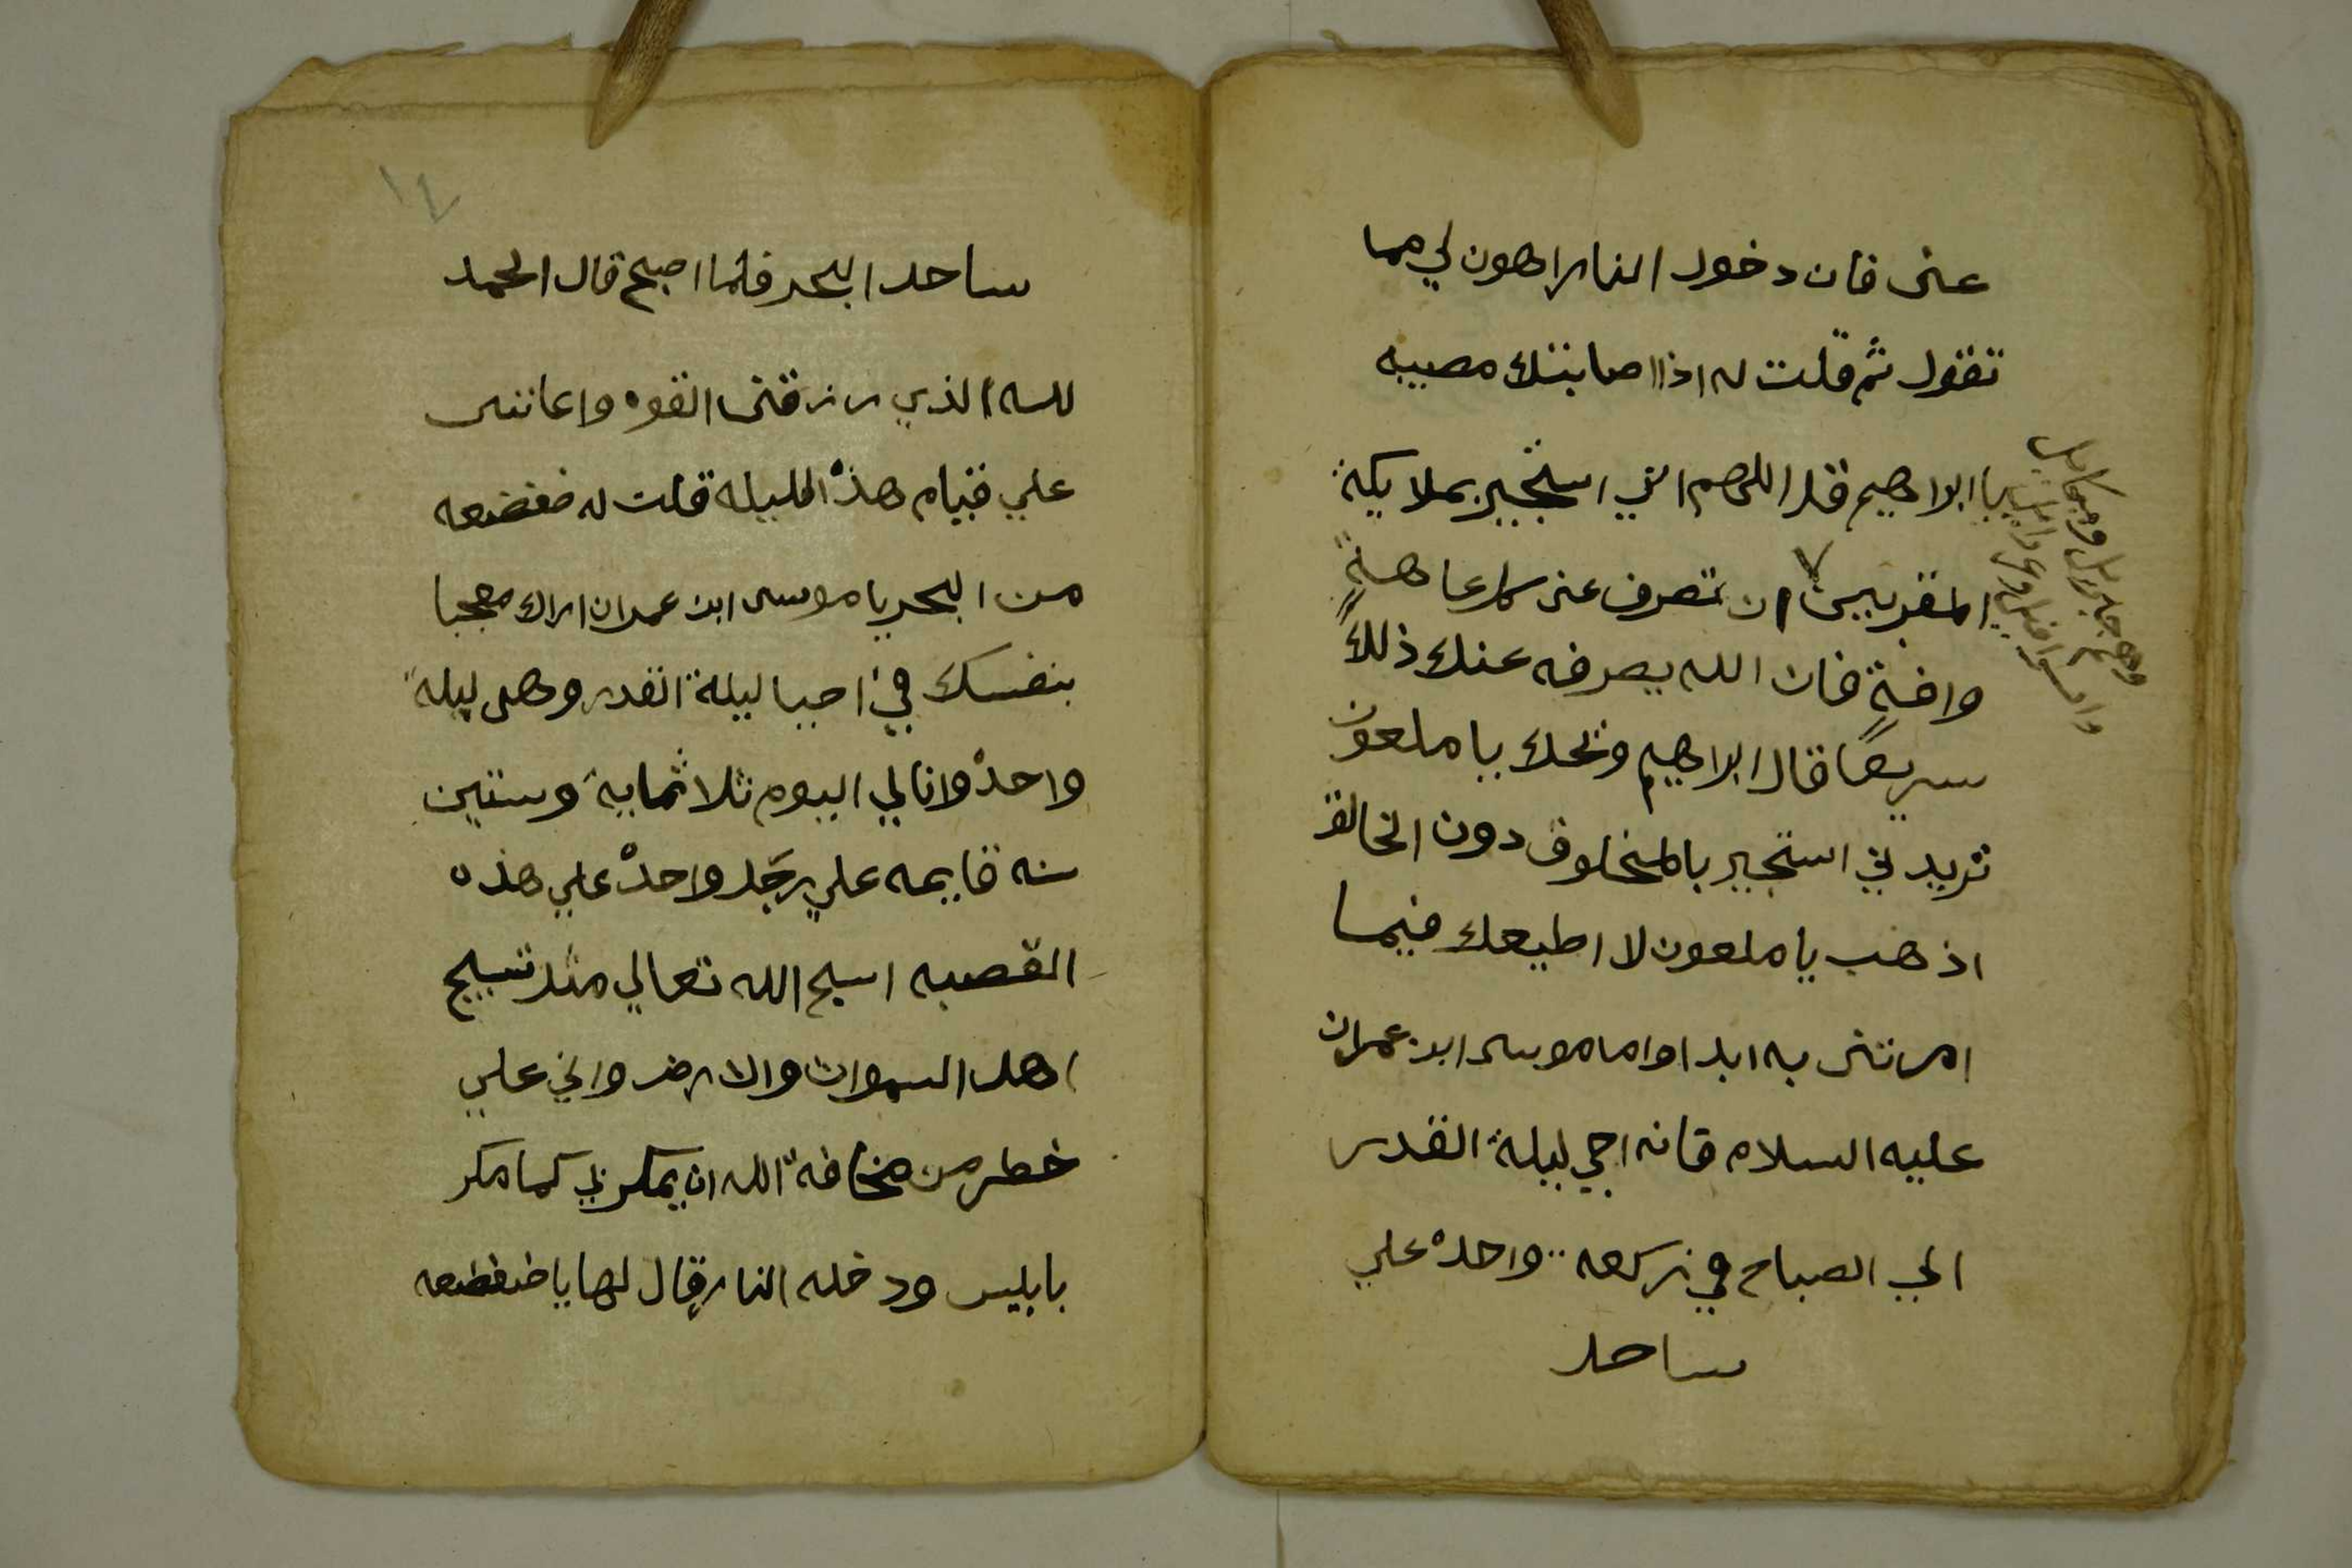 عنى فان دخول النار اهون لي مما
تقول ثم قلت له اذا اصابتك مصيبه
يا ابراهيم فقل اللهم اني استجير بملايكة
المقربين ان تصرف عنى كل عاهة
وافة فان الله يصرفه عنك ذلك
سريعا قال ابراهيم ويحك يا ملعون
تريدني استجير بالمخلوق دون الخالق
اذهب يا ملعون لا اطيعك فيما
امرتنى به ابدا واما موسى ابن عمران
عليه السلام فانه احي ليلة القدر
الي الصباح في ركعه واحدة علي
ساحل
وهم جبرايل وميكايل
واسرافيل وعزرايل
١٤
ساحل البحر فلما اصبح قال الحمد
لله الذي رزقنى القوه واعاننى
علي قيام هذه الليله قلت له ضفضعه
من البحر يا موسى ابن عمران اراك معجبا
بنفسك في احيا ليلة القدر وهى ليلة
واحدة وانا لي اليوم ثلاثماية وستين
سنه قايمه علي رجل واحدة علي هذه
القصبه اسبح الله تعالي مثل تسبيح
اهل السموات والارض واني علي
خطر من مخافة الله ان يمكر بي كما مكر
بابليس ودخله النار قال لها يا ضفضعه